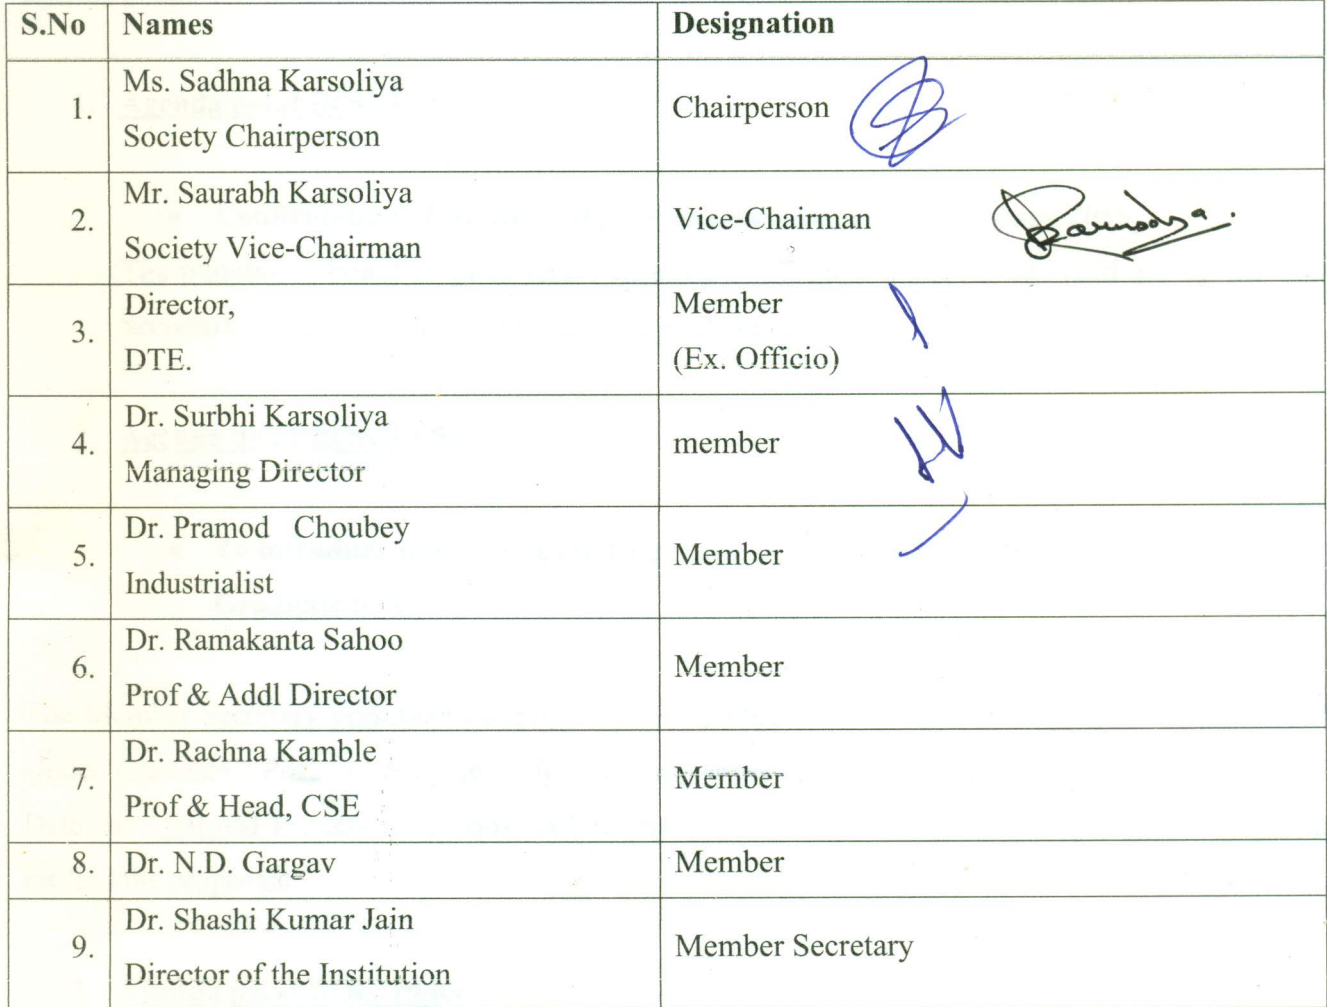 S.No Names Designation
1. Ms. Sadhna Karsoliya
Society Chairperson
Chairperson
2. Mr. Saurabh Karsoliya
Society Vice-Chairman
Vice-Chairman
3. Director,
DTE.
Member
(Ex. Officio)
4. Dr. Surbhi Karsoliya
Managing Director
member
5. Dr. Pramod Choubey
Industrialist
Member
6. Dr. Ramakanta Sahoo
Prof & Addl Director
Member
7. Dr. Rachna Kamble
Prof & Head, CSE
Member
8. Dr. N.D. Gargav Member
9. Dr. Shashi Kumar Jain
Director of the Institution
Member Secretary